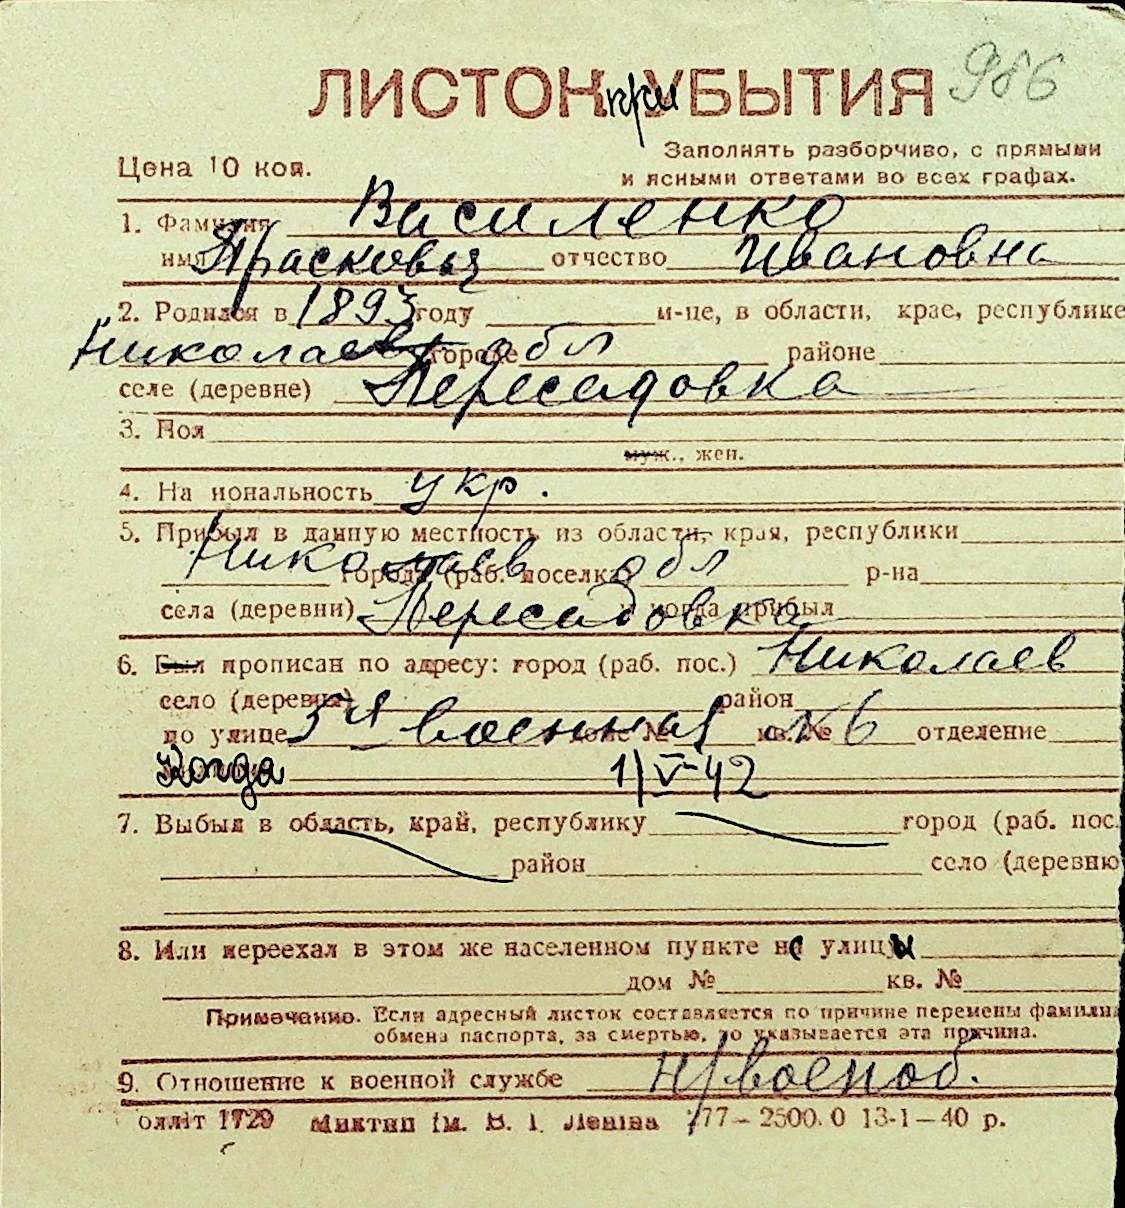 ЛИСТОК при УБЫТИЯ 986
Цена 10 коп.
Заполнять разборчиво, с прямыми
и ясными ответами во всех графах.
1. Фамилия Василенко
имя Прасковья отчество Ивановна
2. Родился в 1893 году м-це, в области, крае, республике
Николаев обл городе районе
селе (деревне) Пересадовка
3. Пол
муж., жен.
4. На иональность укр.
5. Прибыл в данную местность из области, края, республики
Николаев обл города (раб. поселка) р-на
села (деревни) Пересадовка когда прибыл
6. Был прописан по адресу: город (раб. пос.) Николаев
село (деревня) район
по улице 5ая военная дом № кв. № 6 отделение
Когда 1/V-42
7. Выбыл в область, край, республику город (раб. пос.
район село (деревню
8. Или переехал в этом же населенном пункте на улицы
дом № кв. №
Примечание. Если адресный листок составляется по причине перемены фамилии
обмена паспорта, за смертью, то указывается эта причина.
9. Отношение к военной службе н/военоб.
оллiт 1729 Миктип iм. В. I. Ленiна 777–2500.0 13-1–40 р.